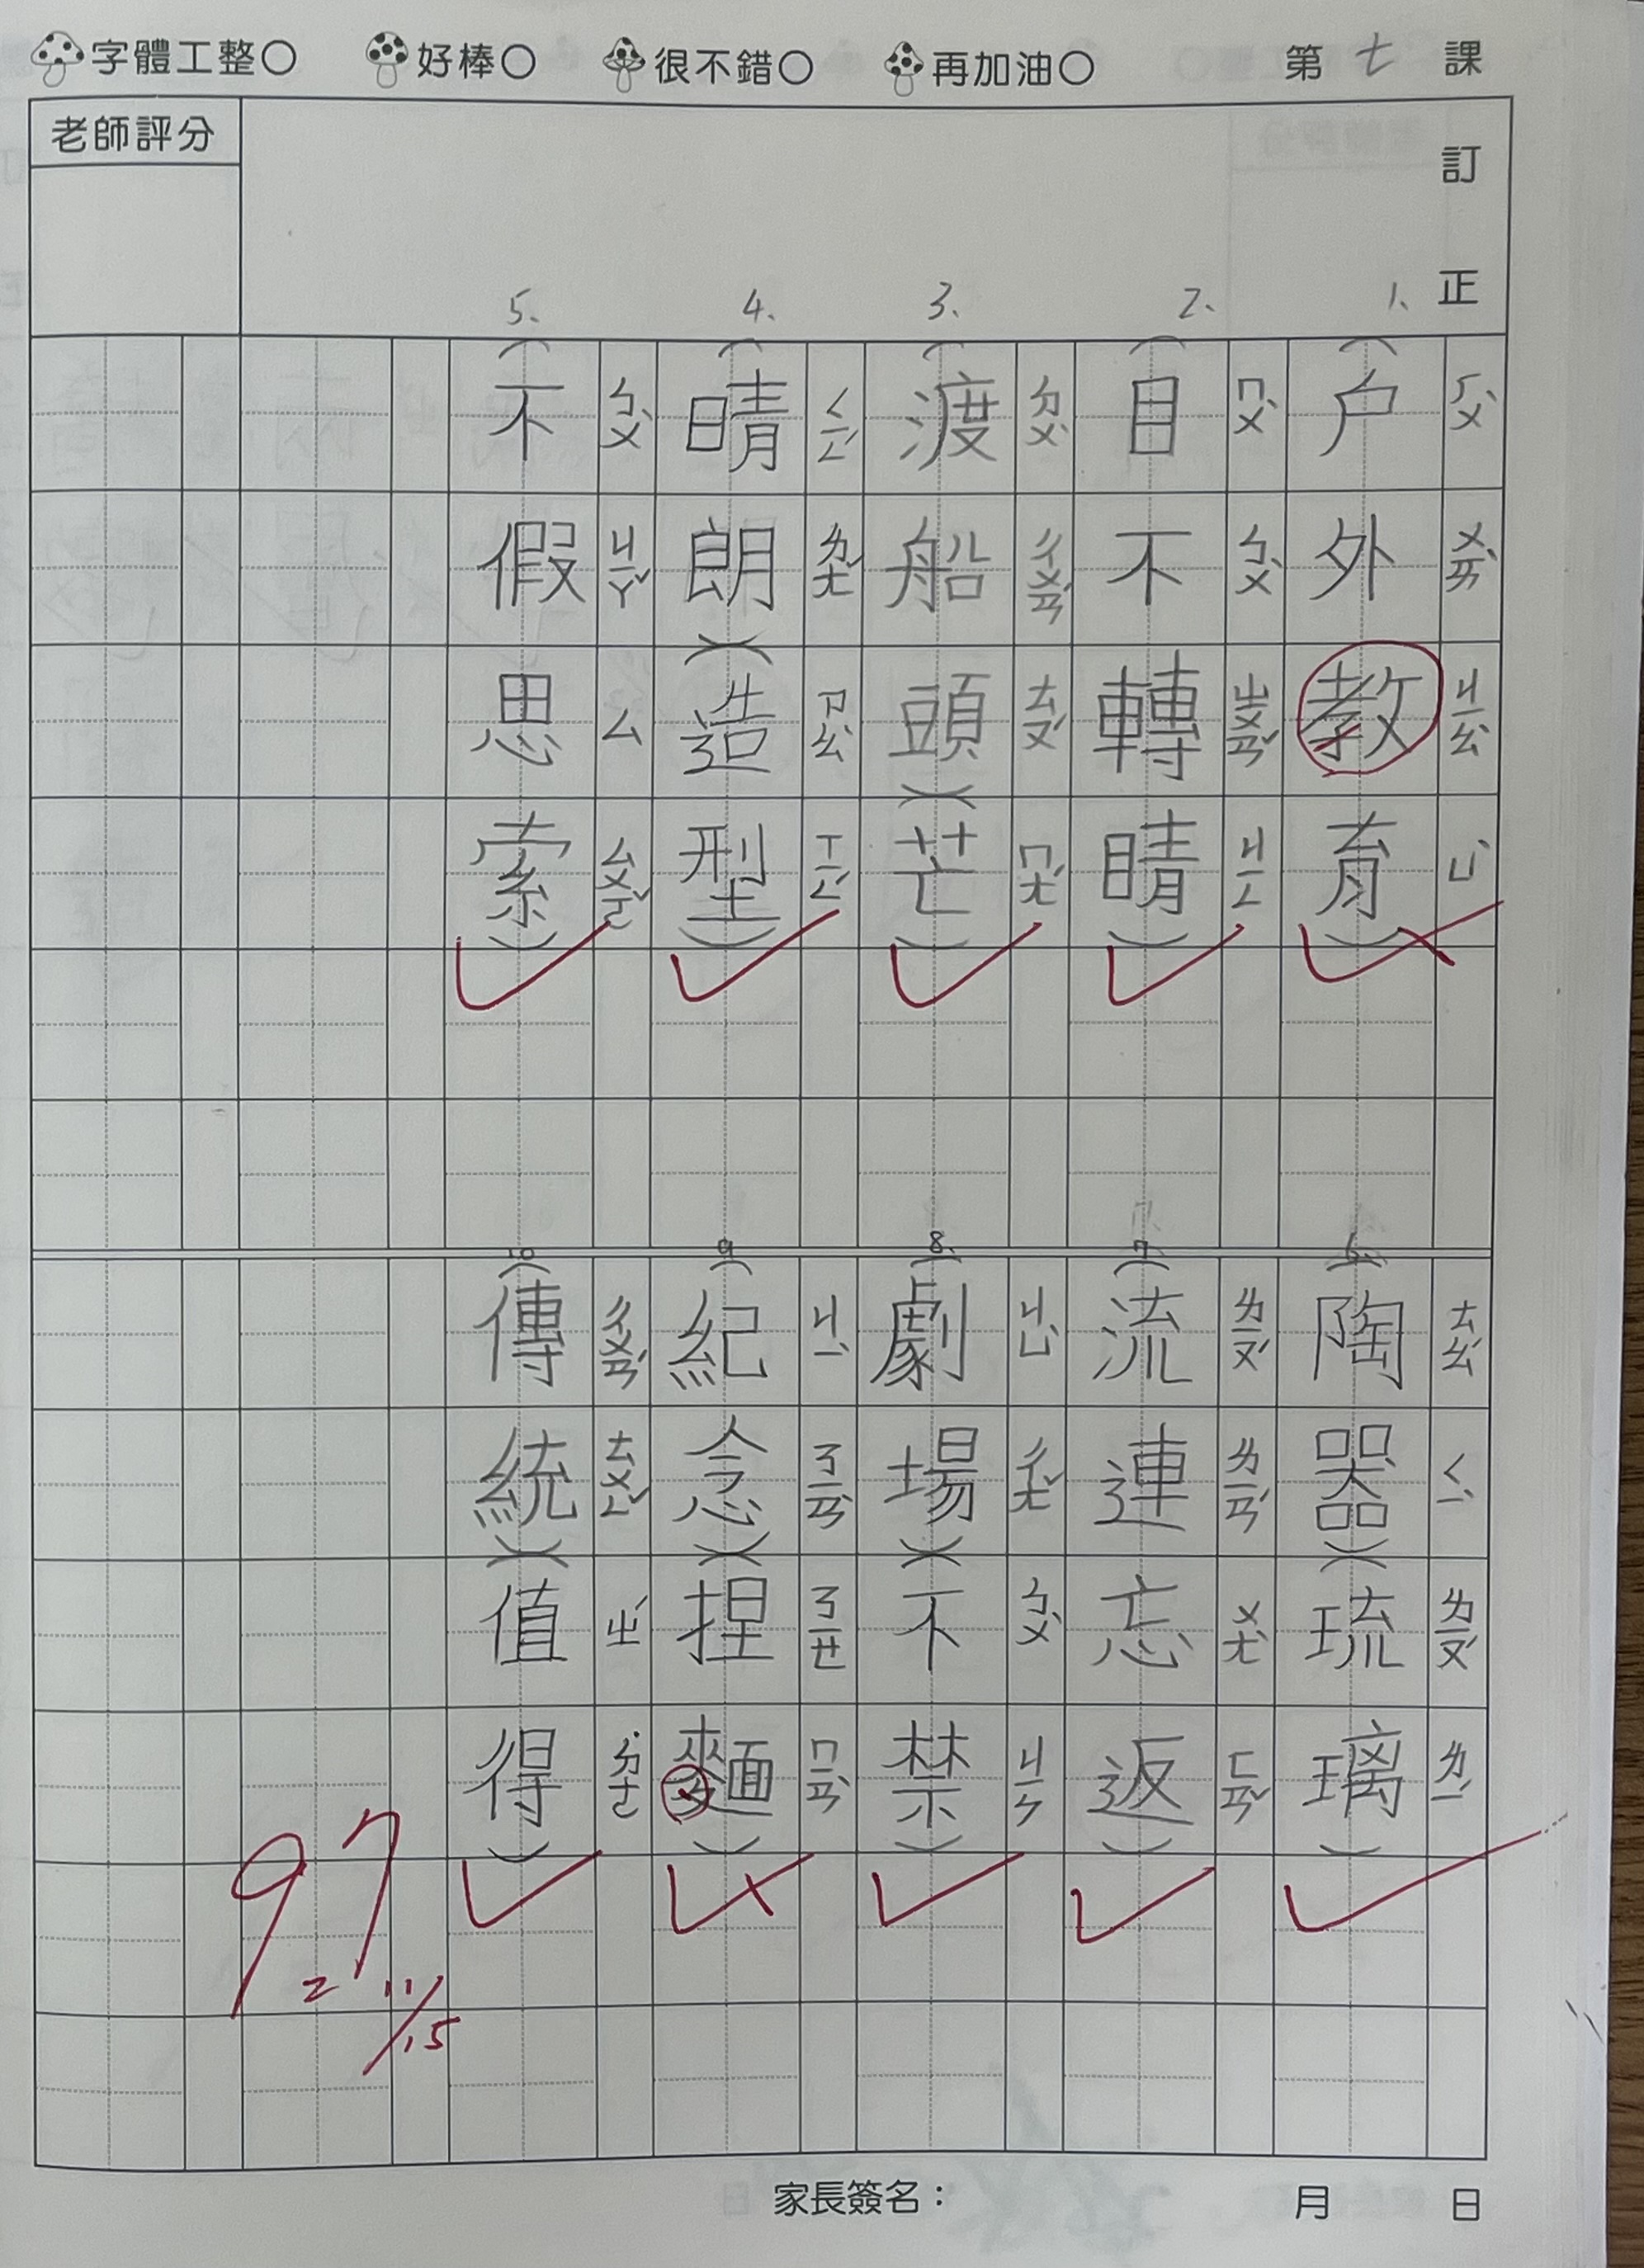 字體工整○ 好棒○ 很不錯○ 再加油○ 第七課
訂正
老師評分
1、
(戶外教育)
ㄏㄨˋ ㄨㄞˋ ㄐㄧㄠˋ ㄩˋ
2、
(目不轉睛)
ㄇㄨˋ ㄅㄨˋ ㄓㄨㄢˇ ㄐㄧㄥ
3、
(渡船頭)(芒)
ㄉㄨˋ ㄔㄨㄢˊ ㄊㄡˊ ㄇㄤˊ
4、
(晴朗)(造型)
ㄑㄧㄥˊ ㄌㄤˇ ㄗㄠˋ ㄒㄧㄥˊ
5、
(不假思索)
ㄅㄨˋ ㄐㄧㄚˇ ㄙ ㄙㄨㄛˇ
6、
(陶器)(琉璃)
ㄊㄠˊ ㄑㄧˋ ㄌㄧㄡˊ ㄌㄧˊ
7
(流連忘返)
ㄌㄧㄡˊ ㄌㄧㄢˊ ㄨㄤˋ ㄈㄢˇ
8、
(劇場)(不禁)
ㄐㄩˋ ㄔㄤˇ ㄅㄨˋ ㄐㄧㄣ
9
(紀念)(捏麵)
ㄐㄧˋ ㄋㄧㄢˋ ㄋㄧㄝ ㄇㄧㄢˋ
10
(傳統)(值得)
ㄔㄨㄢˊ ㄊㄨㄥˇ ㄓˊ ㄉㄜ˙
97
2
11/15
家長簽名： 月 日